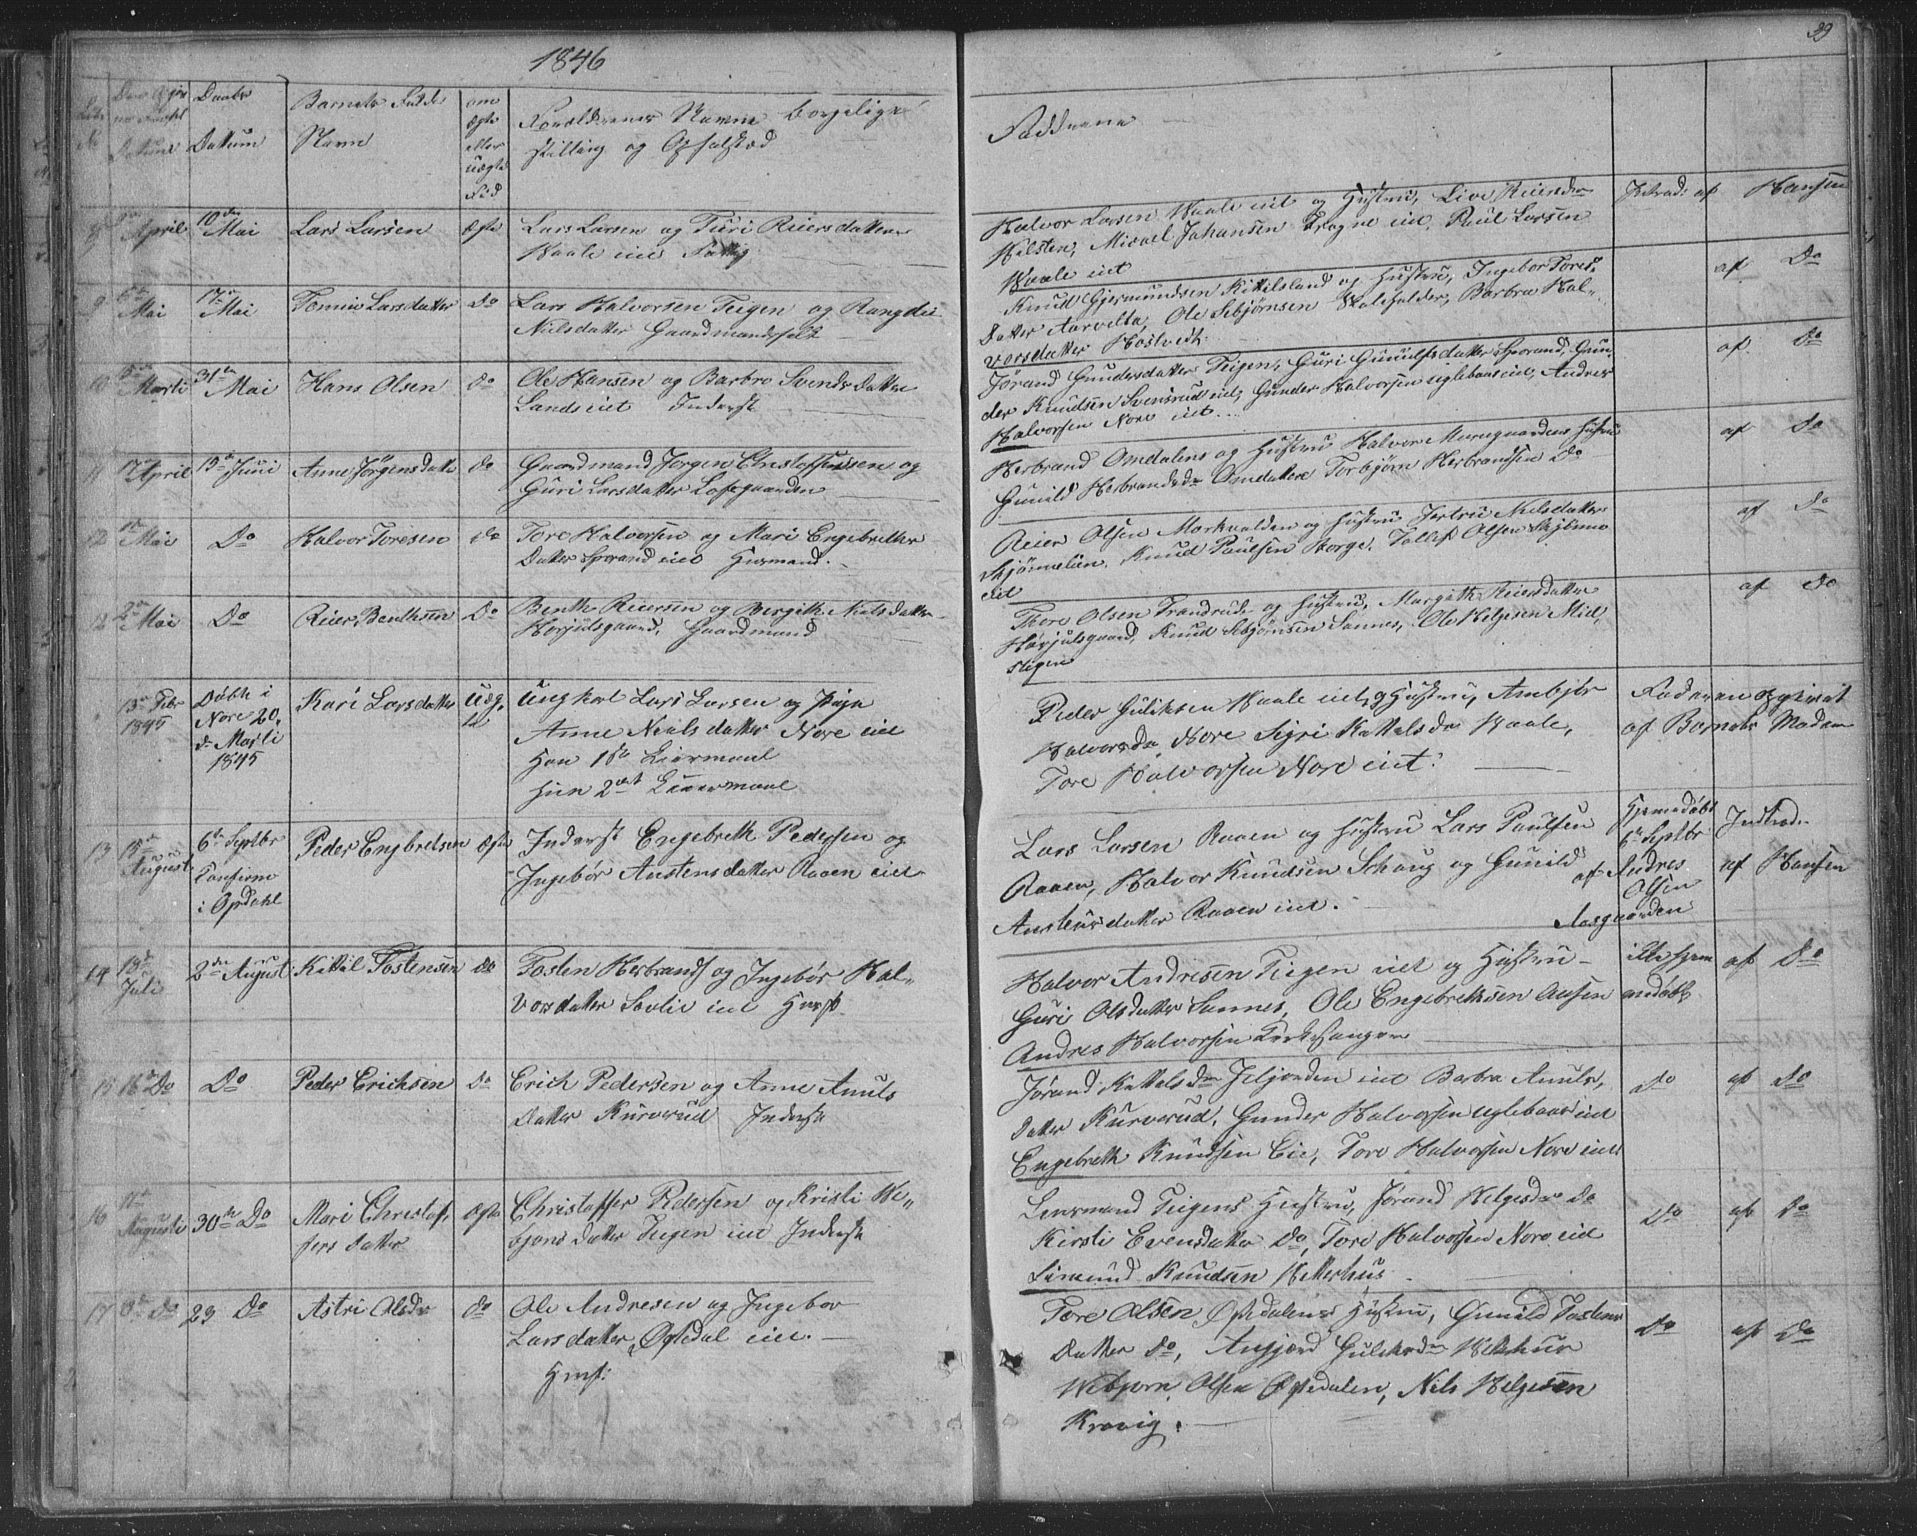 1846
39
Daabs
Dattum
Barnets Fulde
Navn
om
ægte
eller
uægte
Fød
Forældrenes Navne borgelige
Stilling og Opholsted
Faddrene
8 April 10de Mai Lars Larsen Ægte
Lars Larsen og Turi Reiersdatter
Vaale eiet Fattig
Halvor Larsen Vaale eiet og Hustru, Live Reiersdr
Helsten, Micael Johansen Tragne eiet, Paul Larsen
Vaale eiet
Introd: af Hansen
9 Mai 17de Mai Tonnie Larsdatter Do
Lars Halvorsen Teigen og Rangdi
Nielsdatter Gaardmandsfolk
Knud Gjermundsen Kittilsland og Hustru, Ingebor Tores
Datter Aarvelta, Ole Sebjørnsen Valefalder, Barbra Hal-
vorsdatter Hostvedt
af Do
10 Marti 31te Mai Hans Olsen do
Ole Hansen og Barbro Svends datter
Landseiet Inderst
Jørand Gundersdatter Teigen, Guri Gunulfsdatter Sporand, Gun-
der Knudsen Svensrud eiet, Gunder Halvorsen Uglebaas eiet, Andres
Halvorsen Nore eiet
af Do
11 17 April 15de Juni Anne Jørgensdatter do
Gaardmand Jørgen Christoffersen og
Guri Larsdatter Lofsgaarden
Herbrand Omdalens og Hustru Halvor Muregaardens Hustru
Gunild Herbrandsdr Omdalen Torbjørn Herbrandsen Do
af Do
12 Mai Do Halvor Toresen do
Tore Halvorsen og Mari Engebrethe
Datter Sporand eiet Husmand.
Reier Olsen Markvolden og Hustru Jertru Nielsdatter
Skjønnelien, Knud Paulsen Borge, Tollef Olsen Skjønne
eiet
af Do
12 2de Mai Do Reier Benthsen Do
Benth Reiersen og Bergith Nielsdatter
Horjulsgaard, Gaardmand
Thore Olsen Trandrud og Hustru, Margith Reiersdatter
Hørjulsgaard, Knud Sebjørnsen Sannes, Ole Helgesen Mid-
stegen
af Do
13de Febr
1845
Døbt i
Nore 20.
d. Marti
1845
Kari Larsdatter Uæg-
te
Ungkal Lars Larsen og Pige
Anne Nielsdatter Nore eiet
Han 1ste Leiermaal
hun 2det Leiermaal
Peder Guliksen Vaale eiet, og Hustru, Ambjør
Halvorsdr Nore Sigri Kittelsdr Vaale,
Tore Halvorsen Nore eiet.
Faderen opgivet
af Barnets Moder
13 15de August
6te Septbr
Confirm
i Opdahl
Peder Engbretsen Ægte
Inderst Engebreth Pedersen og
Ingebør Austensdatter Raaen eiet
Lars Larsen Raaen og Hustru Lars Paulsen
Raaen, Halvor Knudsen Schoug og Gunild
Austensdatter Raaen eiet.
Hjemedøbt
6te Septbr
af Andres
Olsen
Aasgaarden
Indtrad.
af Hansen
14 13de Juli 2den August Kittil Tostensen do
Tosten Herbrands og Ingebør Hal-
vorsdatter Sevlie eiet Husf.
Halvor Andresen Teigen eiet og Hustru
Guri Olsdatter Sannes, Ole Engebrethsen Ausen
Andres Halvorsen Kirkesanger
ikke hjem
medøbt
af Do
15 16de Do Do Peder Erichsen Do
Erich Pedersen og Anne Anuls
Datter Kurverud Inderst
Jørand Kittelsdr Jeljorden eiet Barbra Anuls,
datter Kurverud, Gunder Halvorsen Uglebaas eiet
Engebreth Knudsen Eie, Tore Halvorsen Nore eiet
do af Do
16 11te Augusti 30te Do Mari Christof-
fersdatter Ægte
Christoffer Pedersen og Kristi We-
bjørnsdatter Teigen eiet Inderst
Lensmand Teigens Hustru, Jørand Helgesdr do
Kirsti Evensdatter Do, Tore Halvorsen Nore eiet
Simund Knudsen Vetterhus
do af Do
17 do 23 Do Astri Olsdr do
Ole Andresen og Ingebor
Larsdatter Opdal eiet.
Husf:
Tore Olsen Opdalens Hustru, Gunild Tostens
Datter do, Ansjørd Guliksdr Wetthus
Webjørn Olsen Opdalen, Nils Helgesen
Kravig.
do af Do